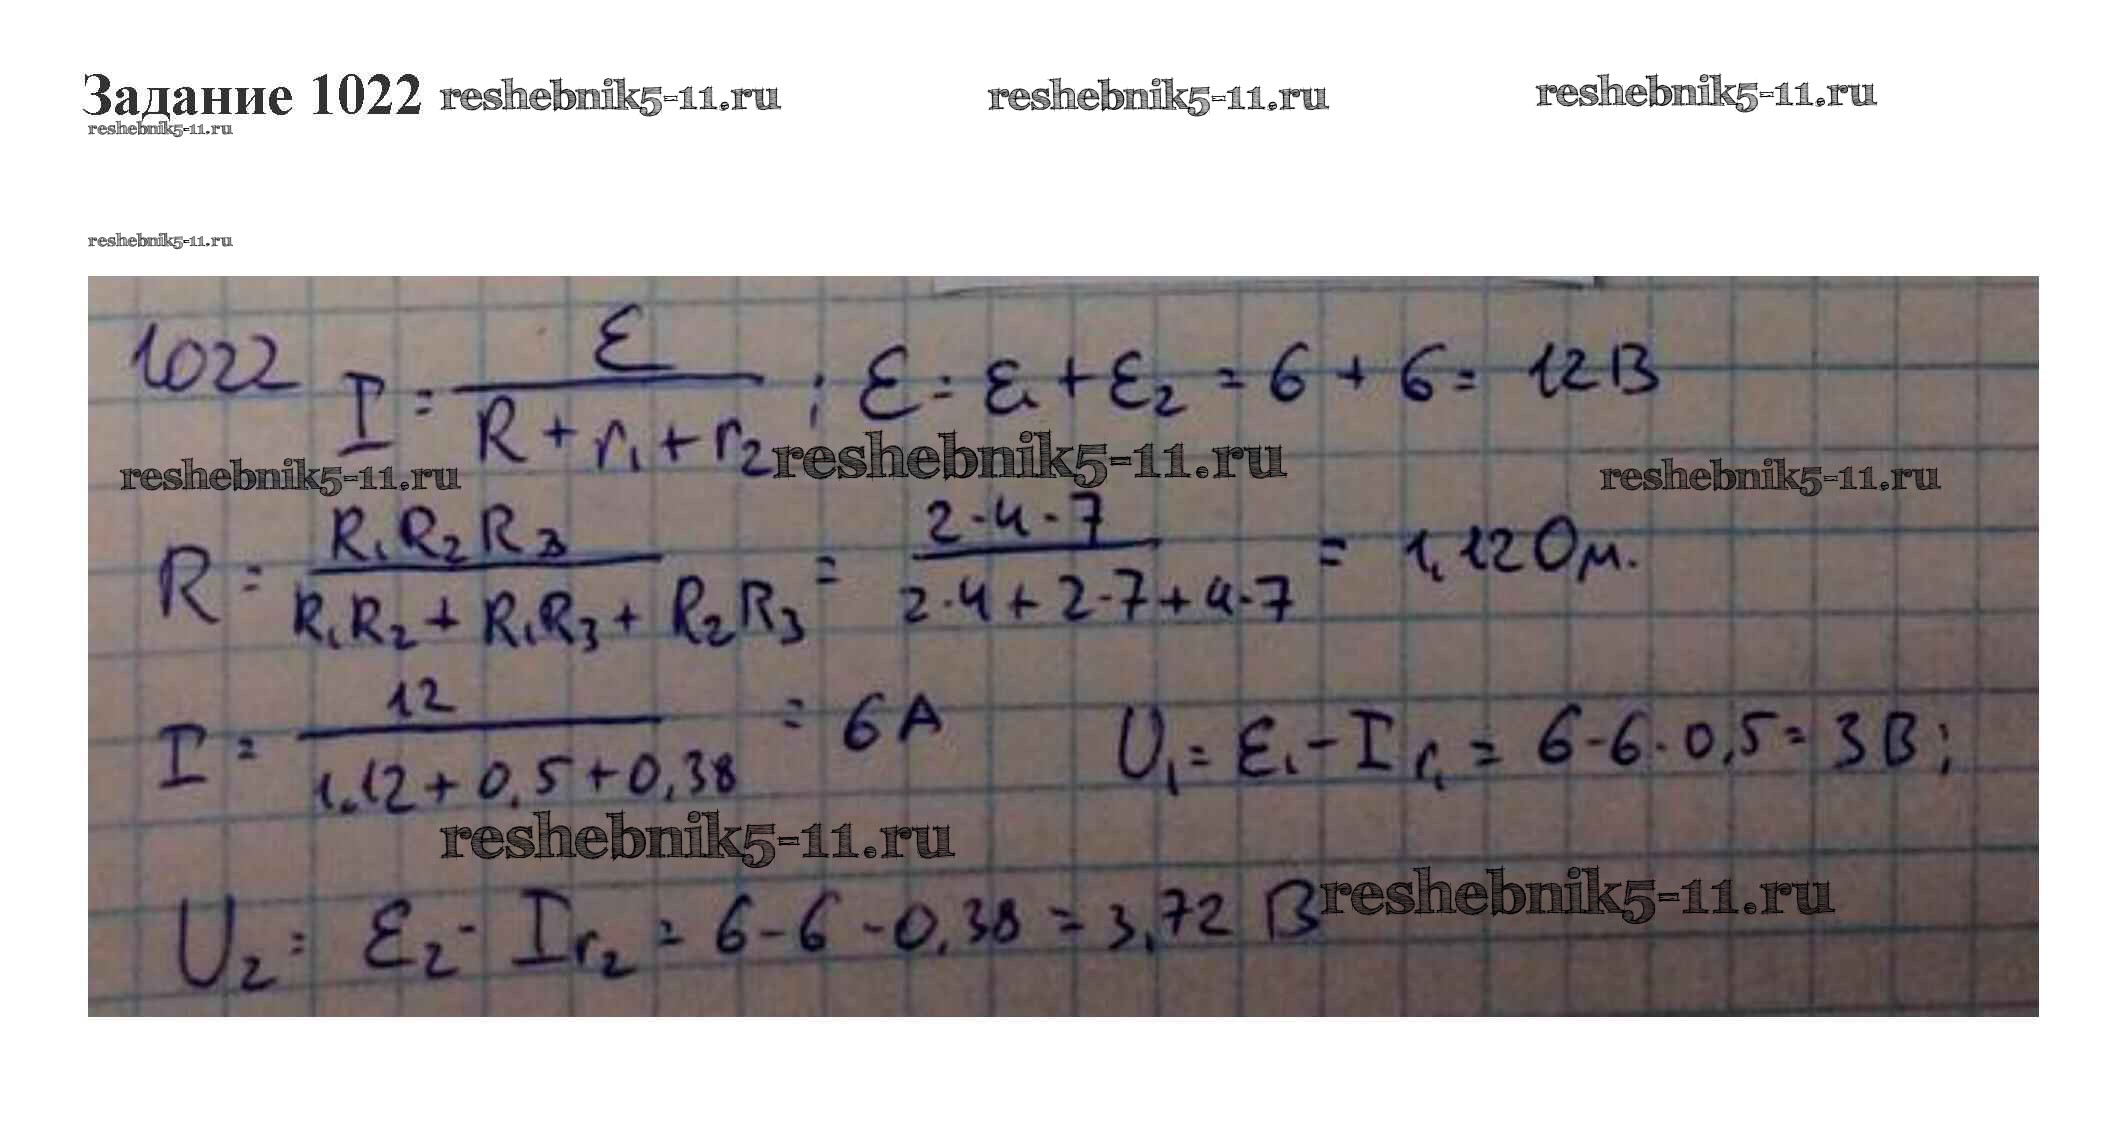 Задание 1022 reshebnik5-11.ru reshebnik5-11.ru reshebnik5-11.ru
reshebnik5-11.ru
reshebnik5-11.ru
1022 I = ε / (R + r₁ + r₂) ; ε = ε₁ + ε₂ = 6 + 6 = 12 В
reshebnik5-11.ru reshebnik5-11.ru reshebnik5-11.ru
R = R₁R₂R₃ / (R₁R₂ + R₁R₃ + R₂R₃) = 2·4·7 / (2·4 + 2·7 + 4·7) = 1,12 Ом.
I = 12 / (1,12 + 0,5 + 0,38) = 6 А U₁ = ε₁ - Ir₁ = 6 - 6·0,5 = 3 В;
reshebnik5-11.ru
reshebnik5-11.ru
U₂ = ε₂ - Ir₂ = 6 - 6 - 0,38 = 3,72 В